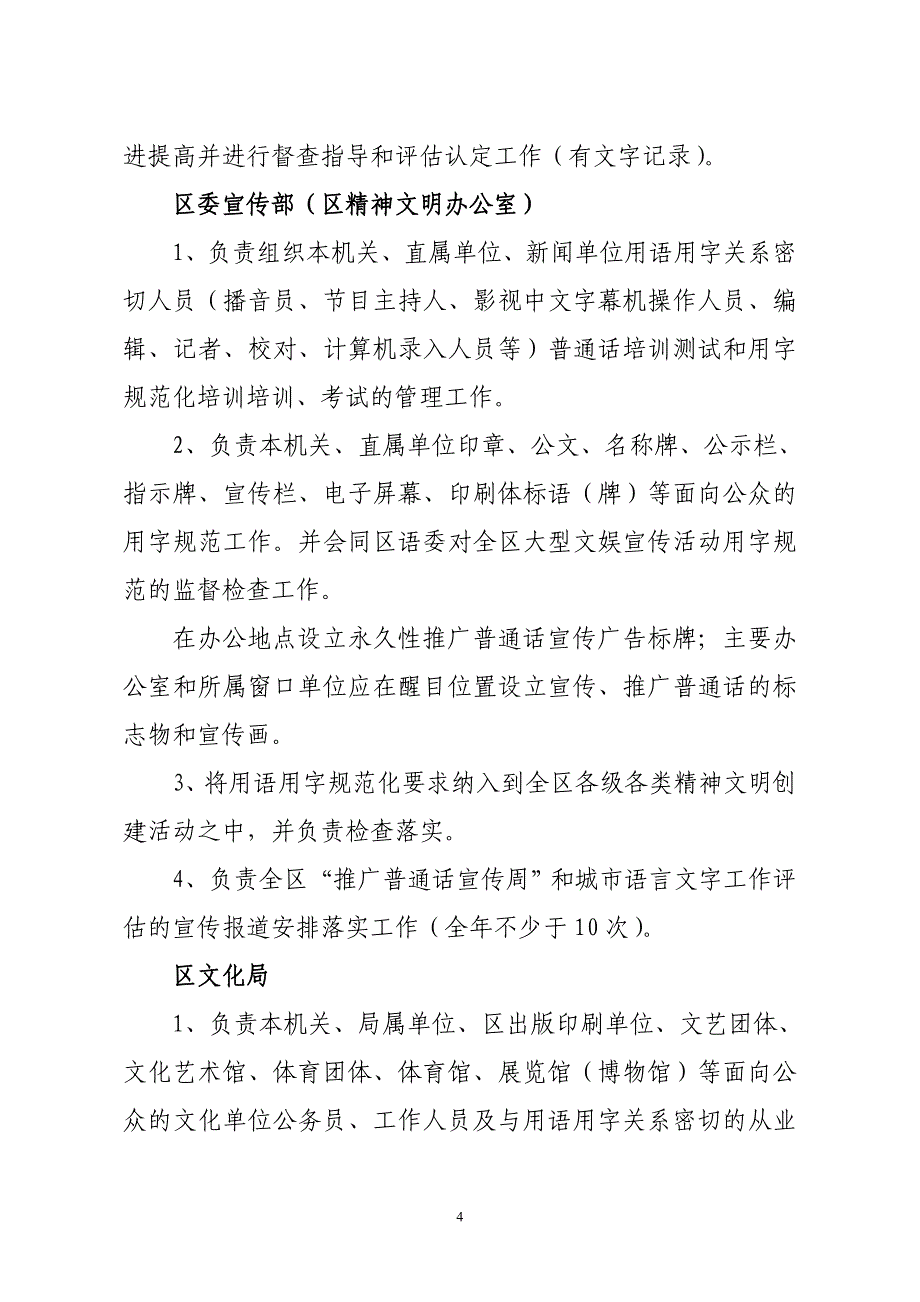 进提高并进行督查指导和评估认定工作（有文字记录）。
区委宣传部（区精神文明办公室）
1、负责组织本机关、直属单位、新闻单位用语用字关系密
切人员（播音员、节目主持人、影视中文字幕机操作人员、编
辑、记者、校对、计算机录入人员等）普通话培训测试和用字
规范化培训培训、考试的管理工作。
2、负责本机关、直属单位印章、公文、名称牌、公示栏、
指示牌、宣传栏、电子屏幕、印刷体标语（牌）等面向公众的
用字规范工作。并会同区语委对全区大型文娱宣传活动用字规
范的监督检查工作。
在办公地点设立永久性推广普通话宣传广告标牌；主要办
公室和所属窗口单位应在醒目位置设立宣传、推广普通话的标
志物和宣传画。
3、将用语用字规范化要求纳入到全区各级各类精神文明创
建活动之中，并负责检查落实。
4、负责全区“推广普通话宣传周”和城市语言文字工作评
估的宣传报道安排落实工作（全年不少于 10 次）。
区文化局
1、负责本机关、局属单位、区出版印刷单位、文艺团体、
文化艺术馆、体育团体、体育馆、展览馆（博物馆）等面向公
众的文化单位公务员、工作人员及与用语用字关系密切的从业
4